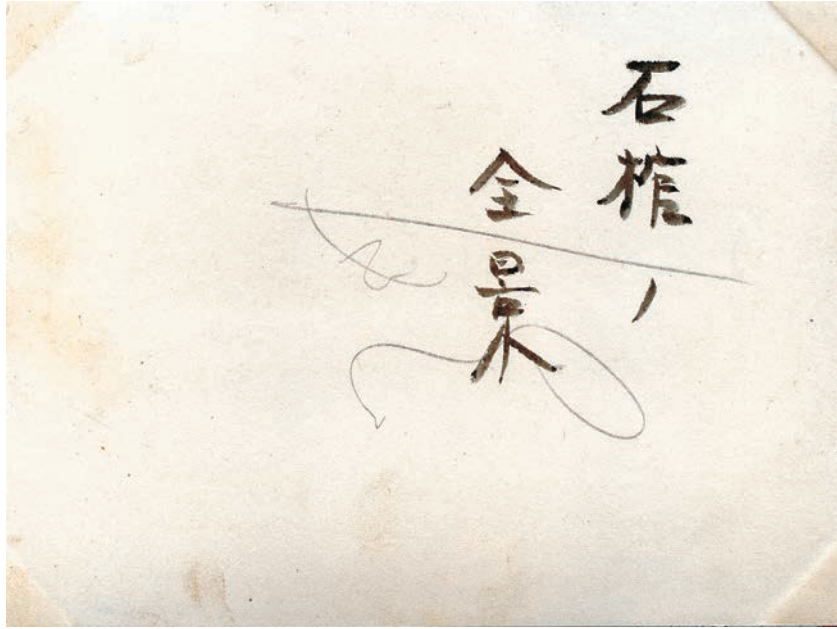 石榨ノ
全景